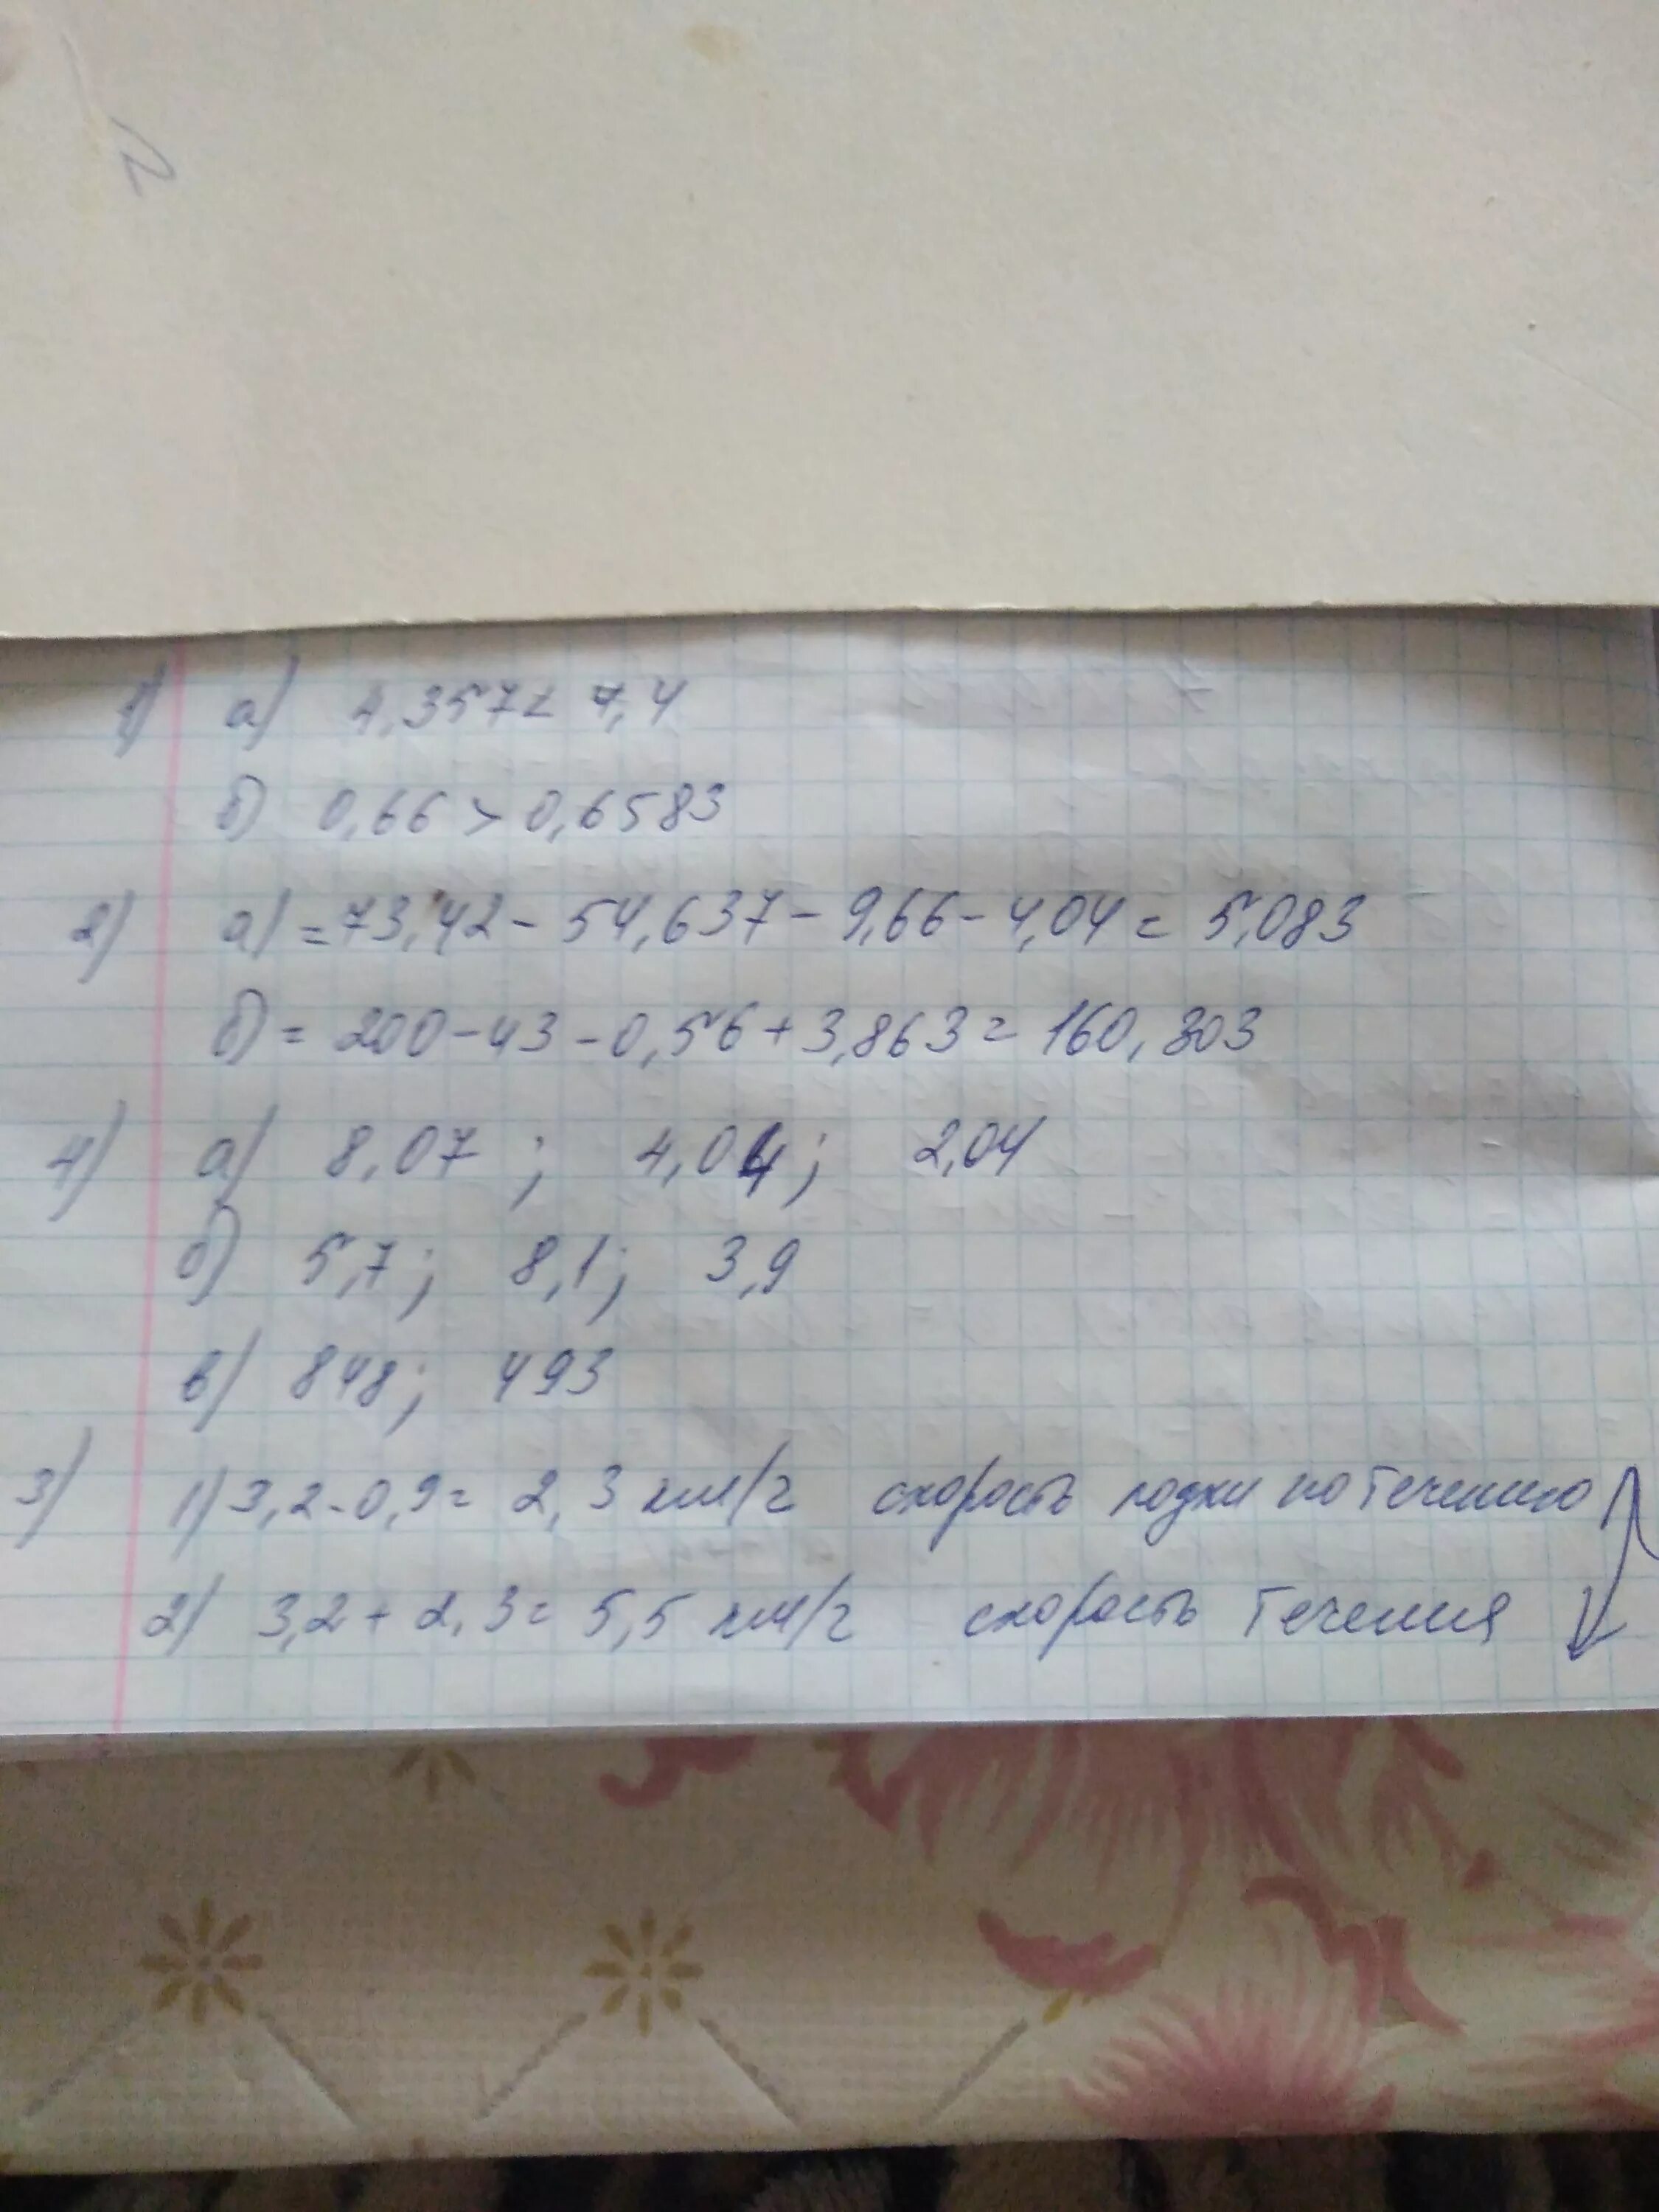 1) а) 4,357 < 7,4
б) 0,66 > 0,6583
2) а) = 73,42 - 54,637 - 9,66 - 4,04 = 5,083
б) = 200 - 43 - 0,56 + 3,863 = 160,303
4) а) 8,07 ; 4,04 ; 2,04
б) 5,7 ; 8,1 ; 3,9
в) 848 ; 493
3) 1) 3,2 - 0,9 = 2,3 км/г скорость лодки по течению
2) 3,2 + 2,3 = 5,5 км/г скорость течения